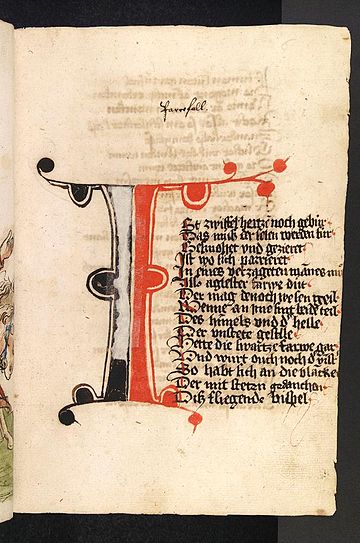 Parcifall
ISt zwiffel hertze noch gebur
Das muß der selen werden sur
Gesmohet vnd gezieret
Ist wo sich parrieret
In eines verzageten mānes mut
Als aglester farwe dut
Der mag dēnoch wesen geil
Wenne an ime sint beide teil
Des himels vnd d' helle
Der vnstete geselle
Hette die swartze farwe gar
Vnd wurt ouch noch d'
So habt sich an die blancke
Der mit steten gedancken
Diß fliegende bispel